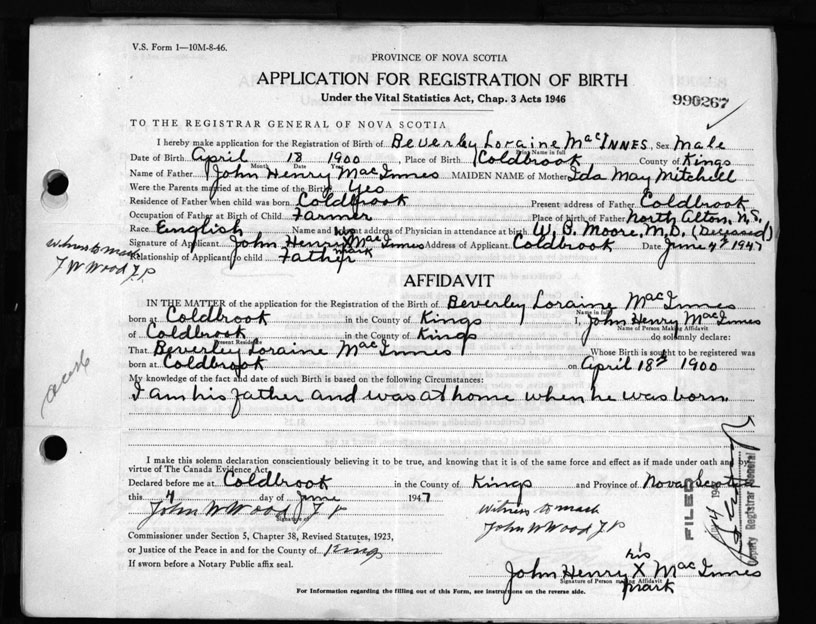 V.S. Form 1—10M-8-46.
PROVINCE OF NOVA SCOTIA
APPLICATION FOR REGISTRATION OF BIRTH
Under the Vital Statistics Act, Chap. 3 Acts 1946
990267
TO THE REGISTRAR GENERAL OF NOVA SCOTIA
I hereby make application for the Registration of Birth of Beverley Loraine MacInnes, Sex Male
Print Name in full
Date of Birth April 18 1900, Place of Birth Coldbrook County of Kings
Month Date Year
Name of Father John Henry MacInnes MAIDEN NAME of Mother Ida May Mitchell
Were the Parents married at the time of the Birth Yes
Residence of Father when child was born Coldbrook Present address of Father Coldbrook
Occupation of Father at Birth of Child Farmer Place of birth of Father North Alton, N.S.
Race English Name and address of Physician in attendance at birth W. B. Moore, M.D. (Deceased)
Signature of Applicant John Henry his X mark MacInnes Address of Applicant Coldbrook Date June 4th 1947
Witness to mark
J W Wood J.P.
Relationship of Applicant to child Father
AFFIDAVIT
IN THE MATTER of the application for the Registration of the Birth of Beverley Loraine MacInnes
Name in full
born at Coldbrook in the County of Kings I, John Henry MacInnes
Name of Person Making Affidavit
of Coldbrook in the County of Kings do solemnly declare:
Present Residence
That Beverley Loraine MacInnes Whose Birth is sought to be registered was
born at Coldbrook on April 18th 1900
My knowledge of the fact and date of such Birth is based on the following Circumstances:
I am his father and was at home when he was born.
I make this solemn declaration conscientiously believing it to be true, and knowing that it is of the same force and effect as if made under oath and by
virtue of The Canada Evidence Act.
Declared before me at Coldbrook in the County of Kings and Province of Nova Scotia
this 4 day of June 1947
John W Wood J P
Signature of
Witness to mark
John W Wood J P
Commissioner under Section 5, Chapter 38, Revised Statutes, 1923,
or Justice of the Peace in and for the County of Kings
If sworn before a Notary Public affix seal.
his
John Henry X MacInnes
Signature of Person making Affidavit
mark
For Information regarding the filling out of this Form, see instructions on the reverse side.
FILED
Deputy Registrar General